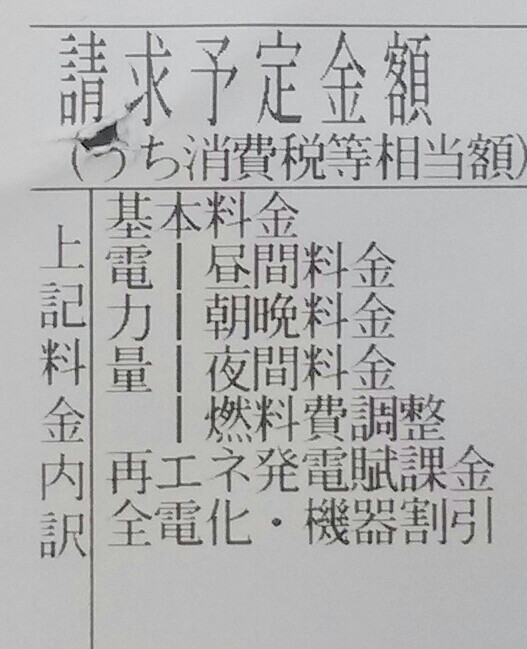 請求予定金額
(うち消費税等相当額)
上記料金内訳
基本料金
電 | 昼間料金
力 | 朝晩料金
量 | 夜間料金
| 燃料費調整
再エネ発電賦課金
全電化・機器割引